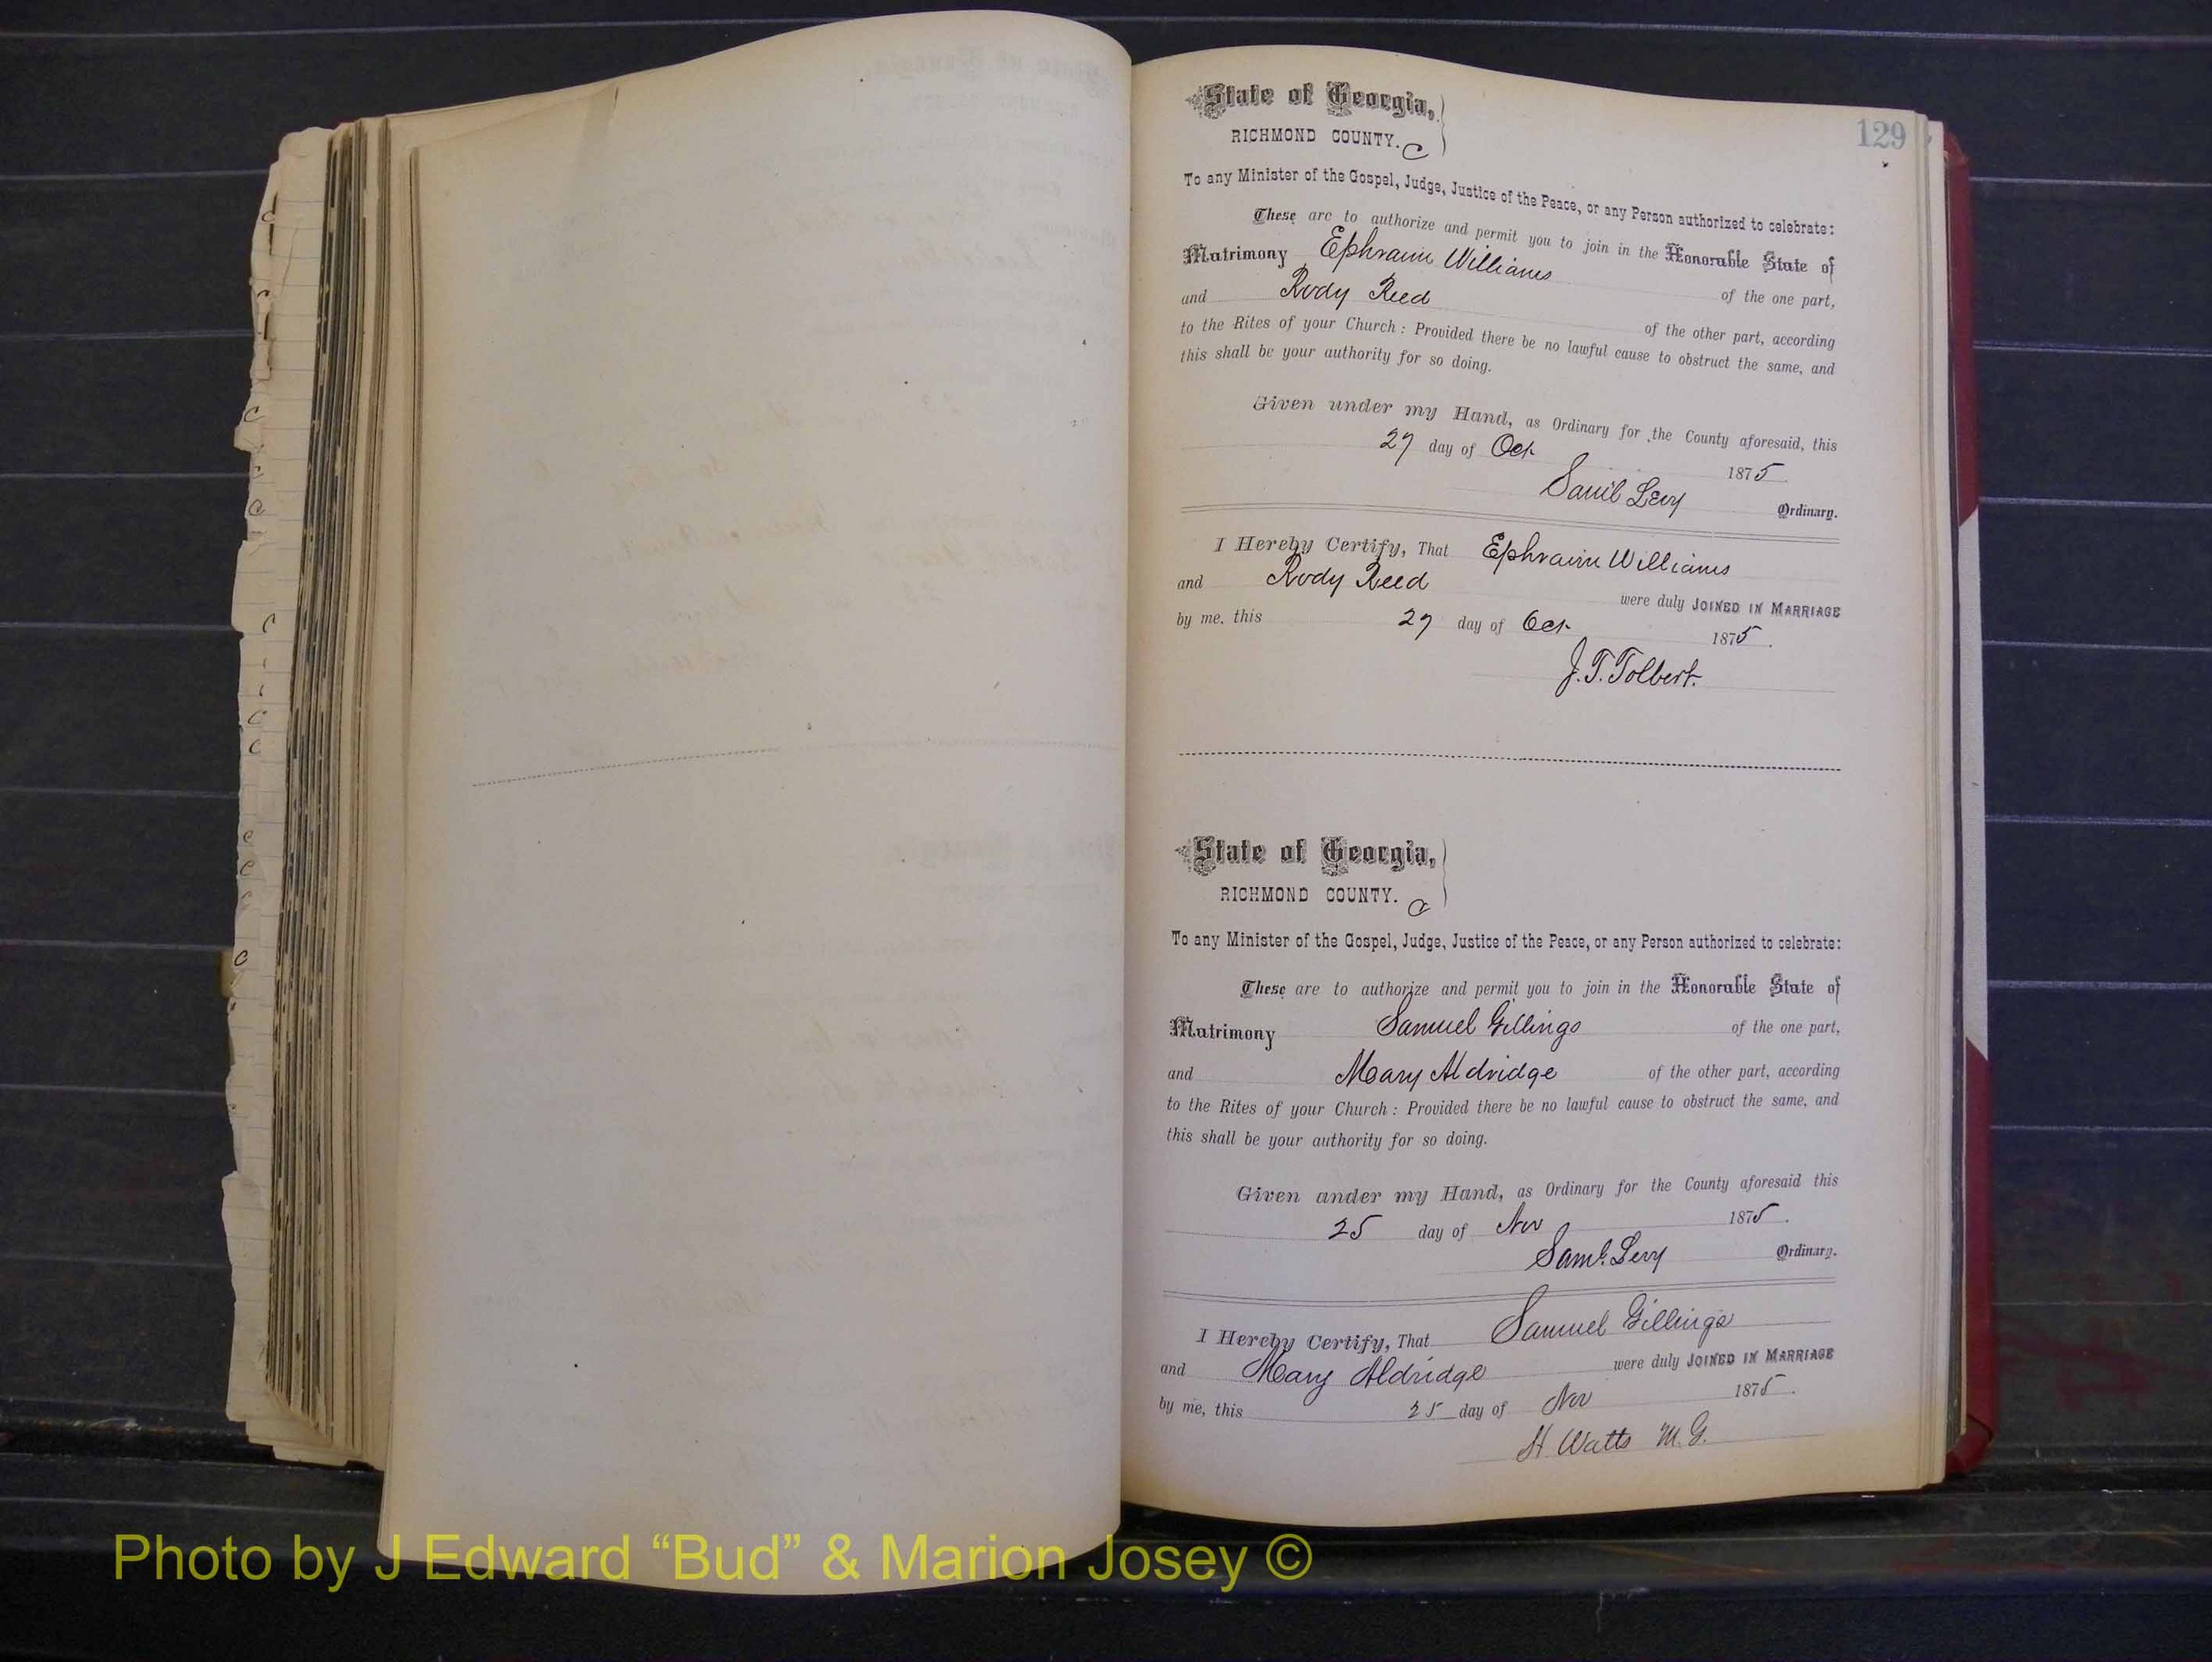 129
State of Georgia,
RICHMOND COUNTY. C
To any Minister of the Gospel, Judge, Justice of the Peace, or any Person authorized to celebrate:
These are to authorize and permit you to join in the Honorable State of
Matrimony Ephraim Williams of the one part,
and Rody Reed of the other part, according
to the Rites of your Church: Provided there be no lawful cause to obstruct the same, and
this shall be your authority for so doing.
Given under my Hand, as Ordinary for the County aforesaid, this
27 day of Oct 1875
Saml Levy Ordinary.
I Hereby Certify, That Ephraim Williams
and Rody Reed were duly JOINED IN MARRIAGE
by me, this 27 day of Oct 1875.
J. T. Tolbert.
State of Georgia,
RICHMOND COUNTY. C
To any Minister of the Gospel, Judge, Justice of the Peace, or any Person authorized to celebrate:
These are to authorize and permit you to join in the Honorable State of
Matrimony Samuel Gillings of the one part,
and Mary Aldridge of the other part, according
to the Rites of your Church: Provided there be no lawful cause to obstruct the same, and
this shall be your authority for so doing.
Given under my Hand, as Ordinary for the County aforesaid this
25 day of Nov 1875.
Saml. Levy Ordinary.
I Hereby Certify, That Samuel Gillings
and Mary Aldridge were duly JOINED IN MARRIAGE
by me, this 25 day of Nov 1875.
H Watts M.G.
Photo by J Edward “Bud” & Marion Josey ©